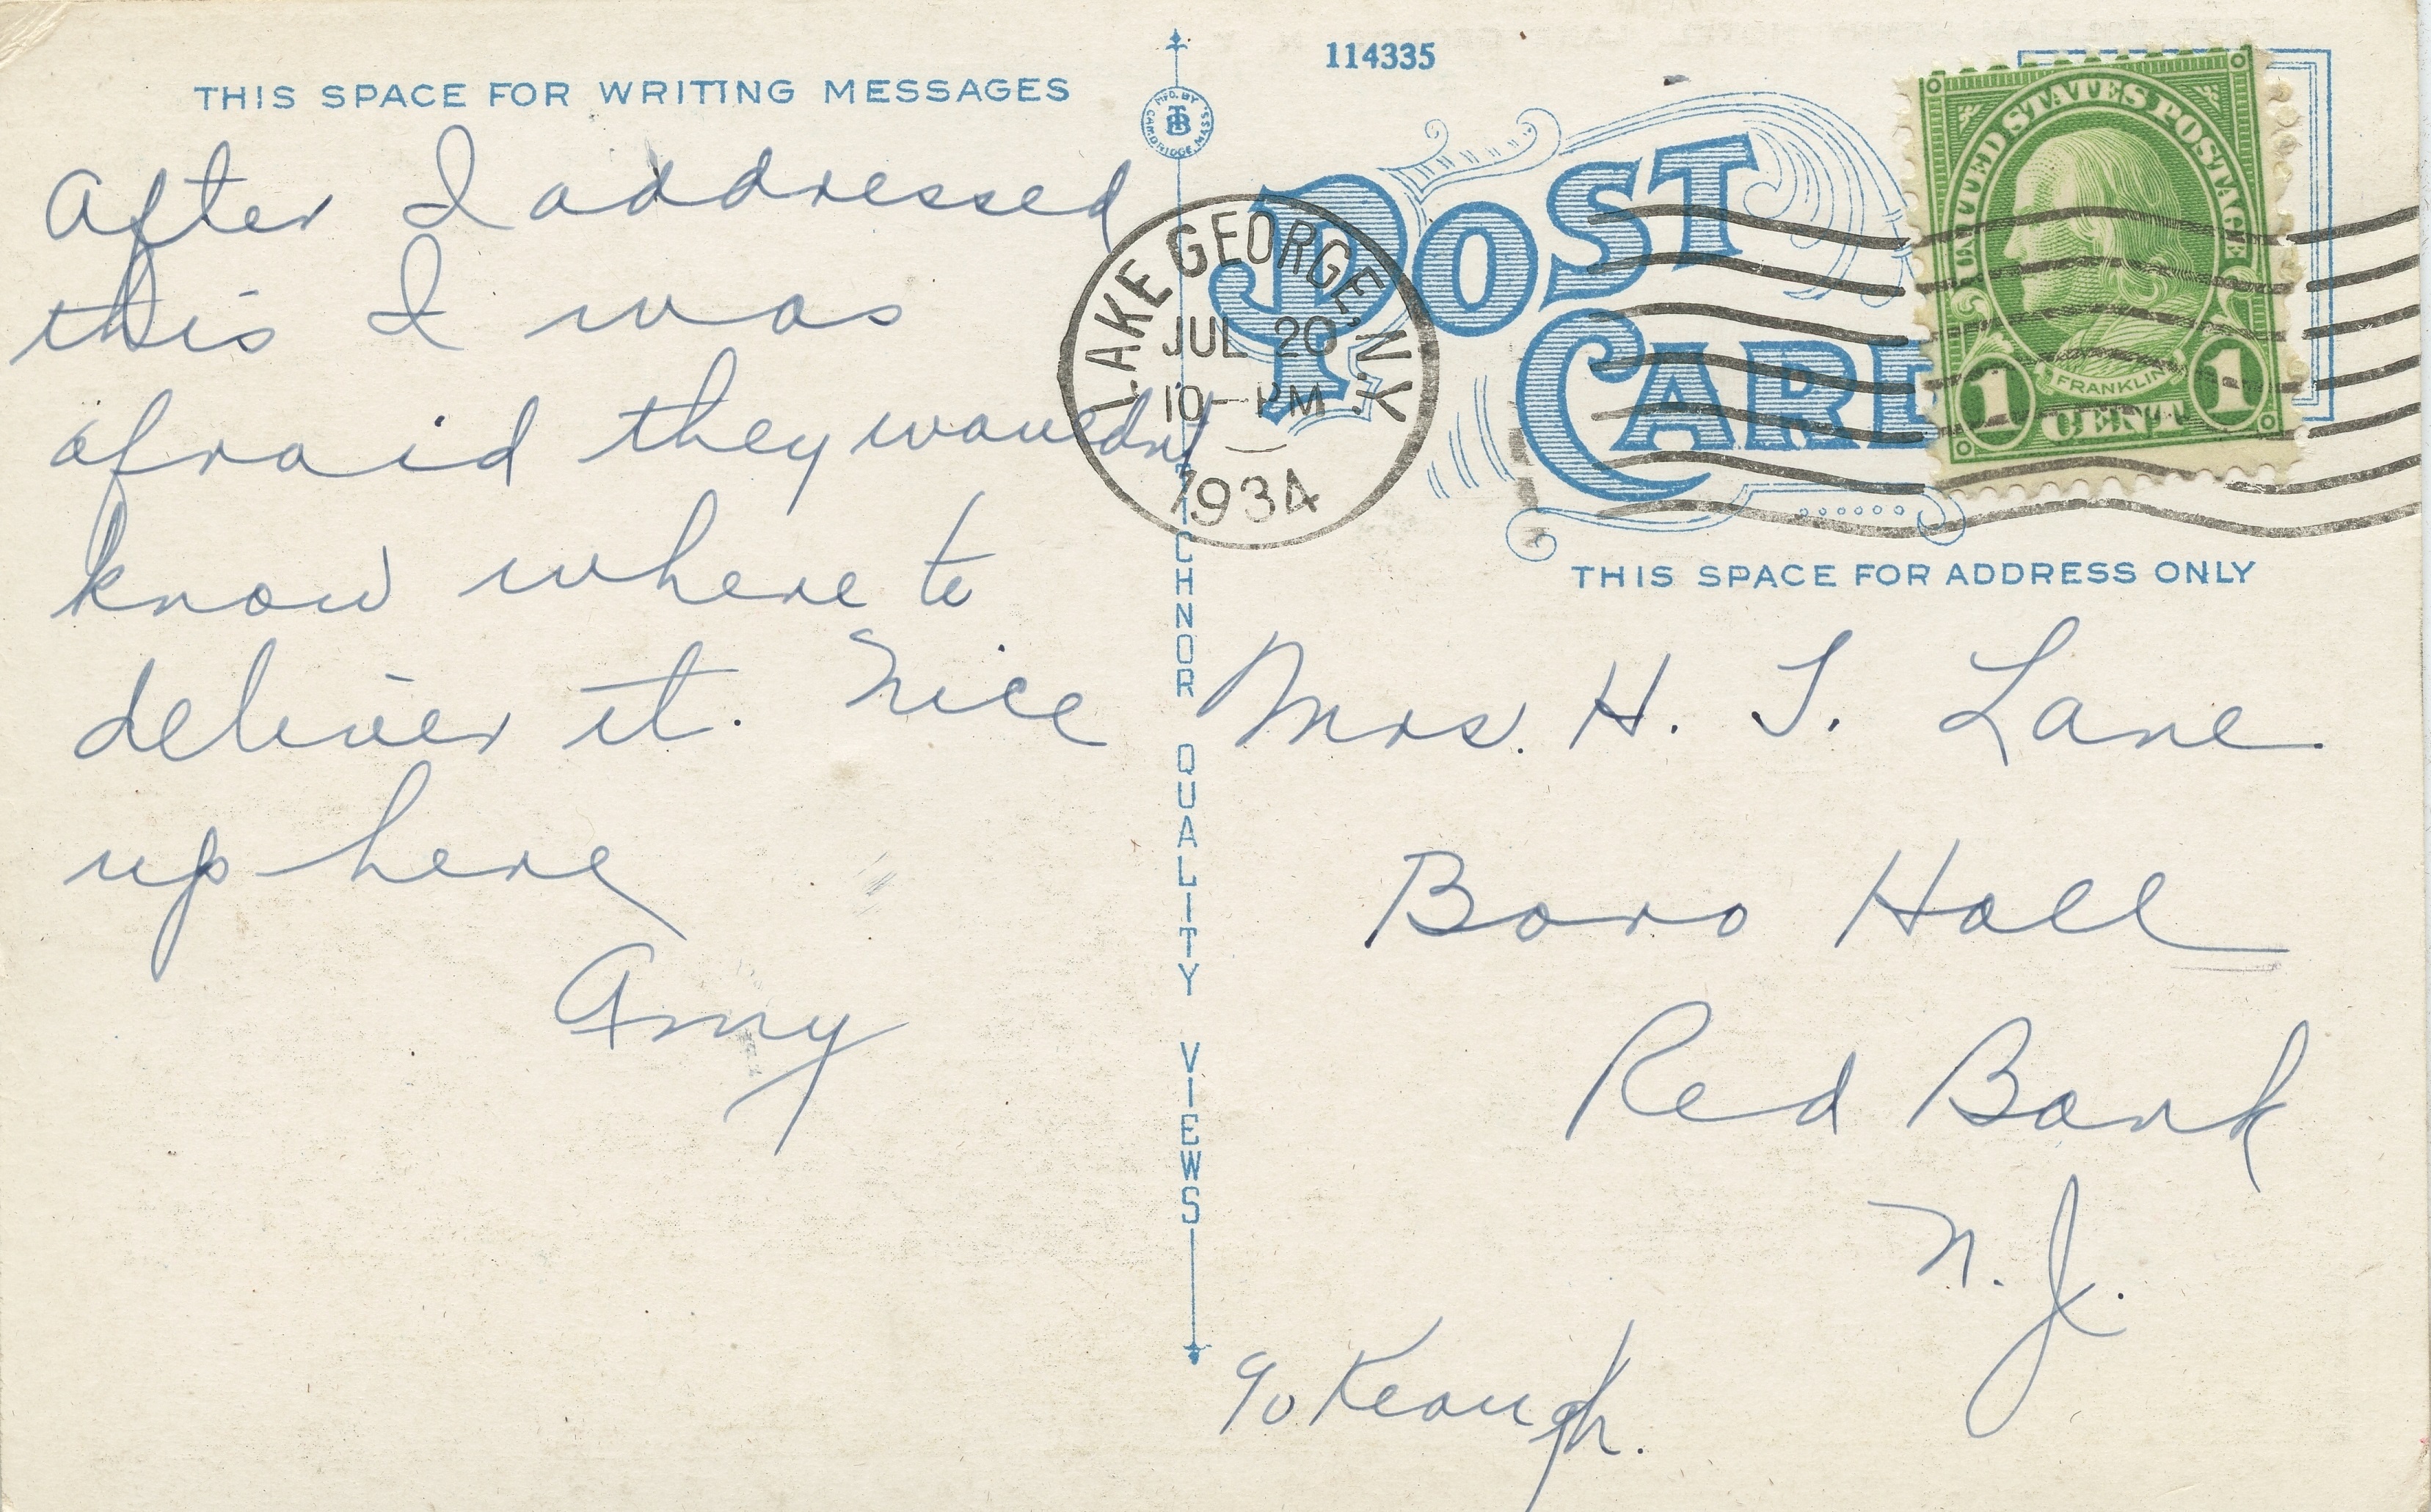 THIS SPACE FOR WRITING MESSAGES
After I addressed
this I was
afraid they wouldnt
know where to
deliver it. Nice
up here
Amy
MFD. BY
CAMBRIDGE, MASS.
TECHNOR QUALITY VIEWS
114335
POST
CARD
LAKE GEORGE, N.Y.
JUL 20
10-PM
1934
UNITED STATES POSTAGE
FRANKLIN
1 CENT 1
THIS SPACE FOR ADDRESS ONLY
Mrs. H. T. Lane.
Boro Hall
Red Bank
N. J.
℅ Keough.